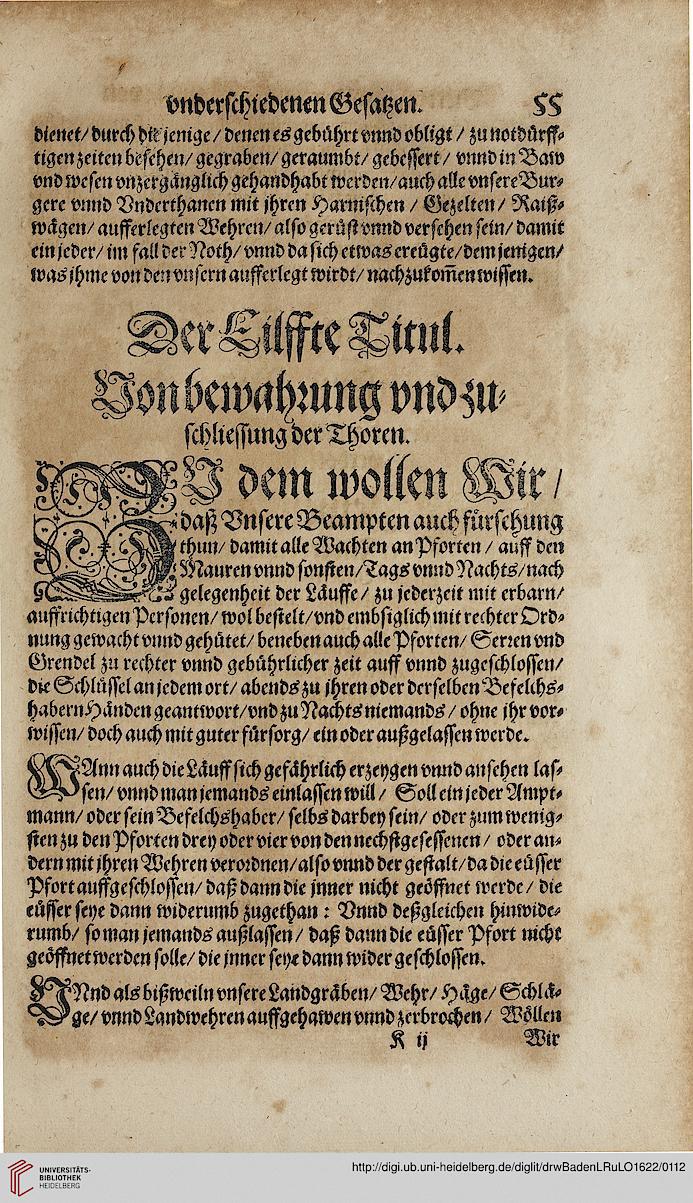 vnderschiedenen Gesatzen. 55
dienet/ durch die jenige / denen es gebührt vnnd obligt / zu notdürff-
tigen zeiten besehen/ gegraben/ geraumbt/ gebessert / vnnd in Baw
vnd wesen vnzergänglich gehandhabt werden/ auch alle vnsere Bur-
gere vnnd Vnderthanen mit jhren Harnischen / Gezelten / Raiß-
wägen/ aufferlegten Wehren/ also gerüst vnnd versehen sein/ damit
ein jeder/ im fall der Noth/ vnnd da sich etwas ereügte/ dem jenigen/
was jhme von den vnsern aufferlegt wirdt/ nachzukom̃en wissen.
Der Eilffte Titul.
Von bewahrung vnd zu-
schliessung der Thoren.
ZV dem wollen Wir /
daß Vnsere Beampten auch fürsehung
thun/ damit alle Wachten an Pforten / auff den
Mauren vnnd sonsten/ Tags vnnd Nachts/ nach
gelegenheit der Läuffe / zu jederzeit mit erbarn/
auffrichtigen Personen/ wol bestelt/ vnd embsiglich mit rechter Ord-
nung gewacht vnnd gehütet/ beneben auch alle Pforten/ Serren vnd
Grendel zu rechter vnnd gebührlicher zeit auff vnnd zugeschlossen/
die Schlüssel an jedem ort/ abends zu jhren oder derselben Befelchs-
habern Händen geantwort/ vnd zu Nachts niemands / ohne jhr vor-
wissen/ doch auch mit guter fürsorg/ ein oder außgelassen werde.
WAnn auch die Läuff sich gefährlich erzeygen vnnd ansehen las-
sen/ vnnd man jemands einlassen will / Soll ein jeder Ampt-
mann/ oder sein Befelchshaber/ selbs darbey sein/ oder zum wenig-
sten zu den Pforten drey oder vier von den nechstgesessenen / oder an-
dern mit jhren Wehren verordnen/ also vnnd der gestalt/ da die eüsser
Pfort auffgeschlossen/ daß dann die jnner nicht geöffnet werde / die
eüsser seye dann widerumb zugethan : Vnnd deßgleichen hinwide-
rumb/ so man jemands außlassen / daß dann die eüsser Pfort nicht
geöffnet werden solle/ die jnner seye dann wider geschlossen.
VNnd als bißweiln vnsere Landgräben/ Wehr/ Häge/ Schlä-
ge/ vnnd Landwehren auffgehawen vnnd zerbrochen / Wöllen
K ij Wir
UNIVERSITÄTS-
BIBLIOTHEK
HEIDELBERG
http://digi.ub.uni-heidelberg.de/diglit/drwBadenLRuLO1622/0112